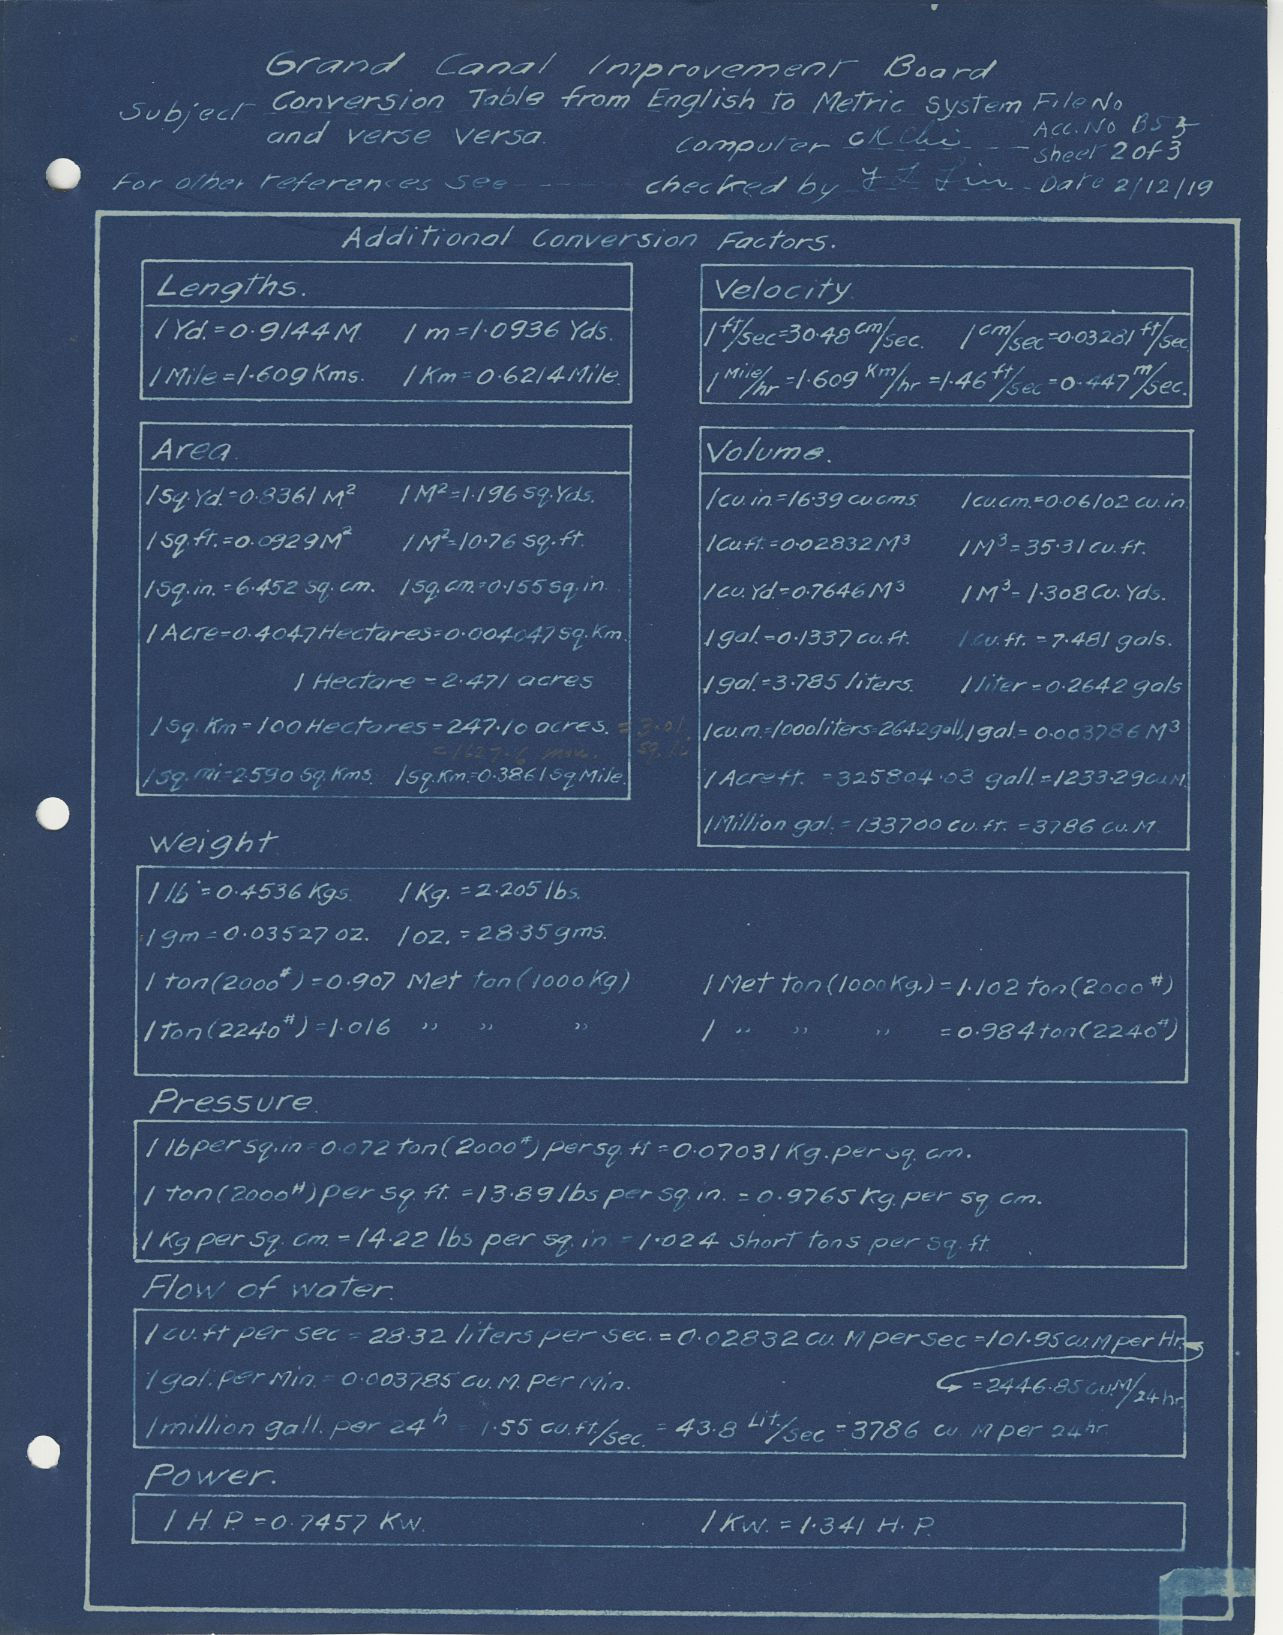 Grand Canal Improvement Board
Subject Conversion Table from English to Metric System File No
and verse versa. Computer CK Chi Acc. No B53
Sheet 2 of 3
For other references see checked by Date 2/12/19
Additional Conversion Factors.
Lengths.
1 Yd. = 0.9144 M. 1 m = 1.0936 Yds.
1 Mile = 1.609 Kms. 1 Km = 0.6214 Mile.
Velocity
1 ft/sec = 30.48 cm/sec. 1 cm/sec = 0.03281 ft/sec
1 Mile/hr = 1.609 Km/hr = 1.46 ft/sec = 0.447 m/sec.
Area
1 Sq. Yd. = 0.8361 M² 1 M² = 1.196 Sq. Yds.
1 sq. ft. = 0.0929 M² 1 M² = 10.76 sq. ft.
1 sq. in. = 6.452 sq. cm. 1 sq. cm. = 0.155 sq. in.
1 Acre = 0.4047 Hectares = 0.004047 sq. Km.
1 Hectare = 2.471 acres
1 sq. Km = 100 Hectares = 247.10 acres. = 3.01
= 1627.6 mow. sq. li
1 sq. mi = 2.590 sq. Kms. 1 sq. Km. = 0.3861 sq Mile.
Volume.
1 cu. in = 16.39 cu cms 1 cu. cm. = 0.06102 cu. in
1 cu ft. = 0.02832 M³ 1 M³ = 35.31 cu. ft.
1 cu. Yd = 0.7646 M³ 1 M³ - 1.308 Cu. Yds.
1 gal. = 0.1337 cu. ft. 1 cu. ft. = 7.481 gals.
1 gal. = 3.785 liters. 1 liter = 0.2642 gals
1 cu. m. = 1000 liters = 264.2 gall. 1 gal. = 0.003786 M³
1 Acre ft. = 325804.03 gall. = 1233.29 cu M.
1 Million gal. = 133700 cu. ft. = 3786 cu. M
Weight
1 lb = 0.4536 Kgs 1 Kg. = 2.205 lbs.
1 gm = 0.03527 oz. 1 oz. = 28.35 gms.
1 ton (2000#) = 0.907 Met ton (1000 Kg) 1 Met ton (1000 Kg.) = 1.102 ton (2000#)
1 ton (2240#) = 1.016 " " " 1 " " " = 0.984 ton (2240#)
Pressure.
1 lb per sq. in = 0.072 ton (2000#) per sq. ft = 0.07031 Kg. per sq. cm.
1 ton (2000#) per sq. ft. = 13.89 lbs per sq. in. = 0.9765 Kg. per sq cm.
1 Kg per sq. cm. = 14.22 lbs per sq. in = 1.024 short tons per sq. ft
Flow of water.
1 cu. ft per sec = 28.32 liters per sec. = 0.02832 cu. M per sec = 101.95 cu. M per Hr.
1 gal. per Min. = 0.003785 cu. M. per Min. = 2446.85 cu M/24 hr
1 million gall. per 24 h = 1.55 cu. ft/sec. = 43.8 Lit./sec = 3786 cu. M per 24 hr.
Power.
1 H. P. = 0.7457 Kw. 1 Kw. = 1.341 H. P.